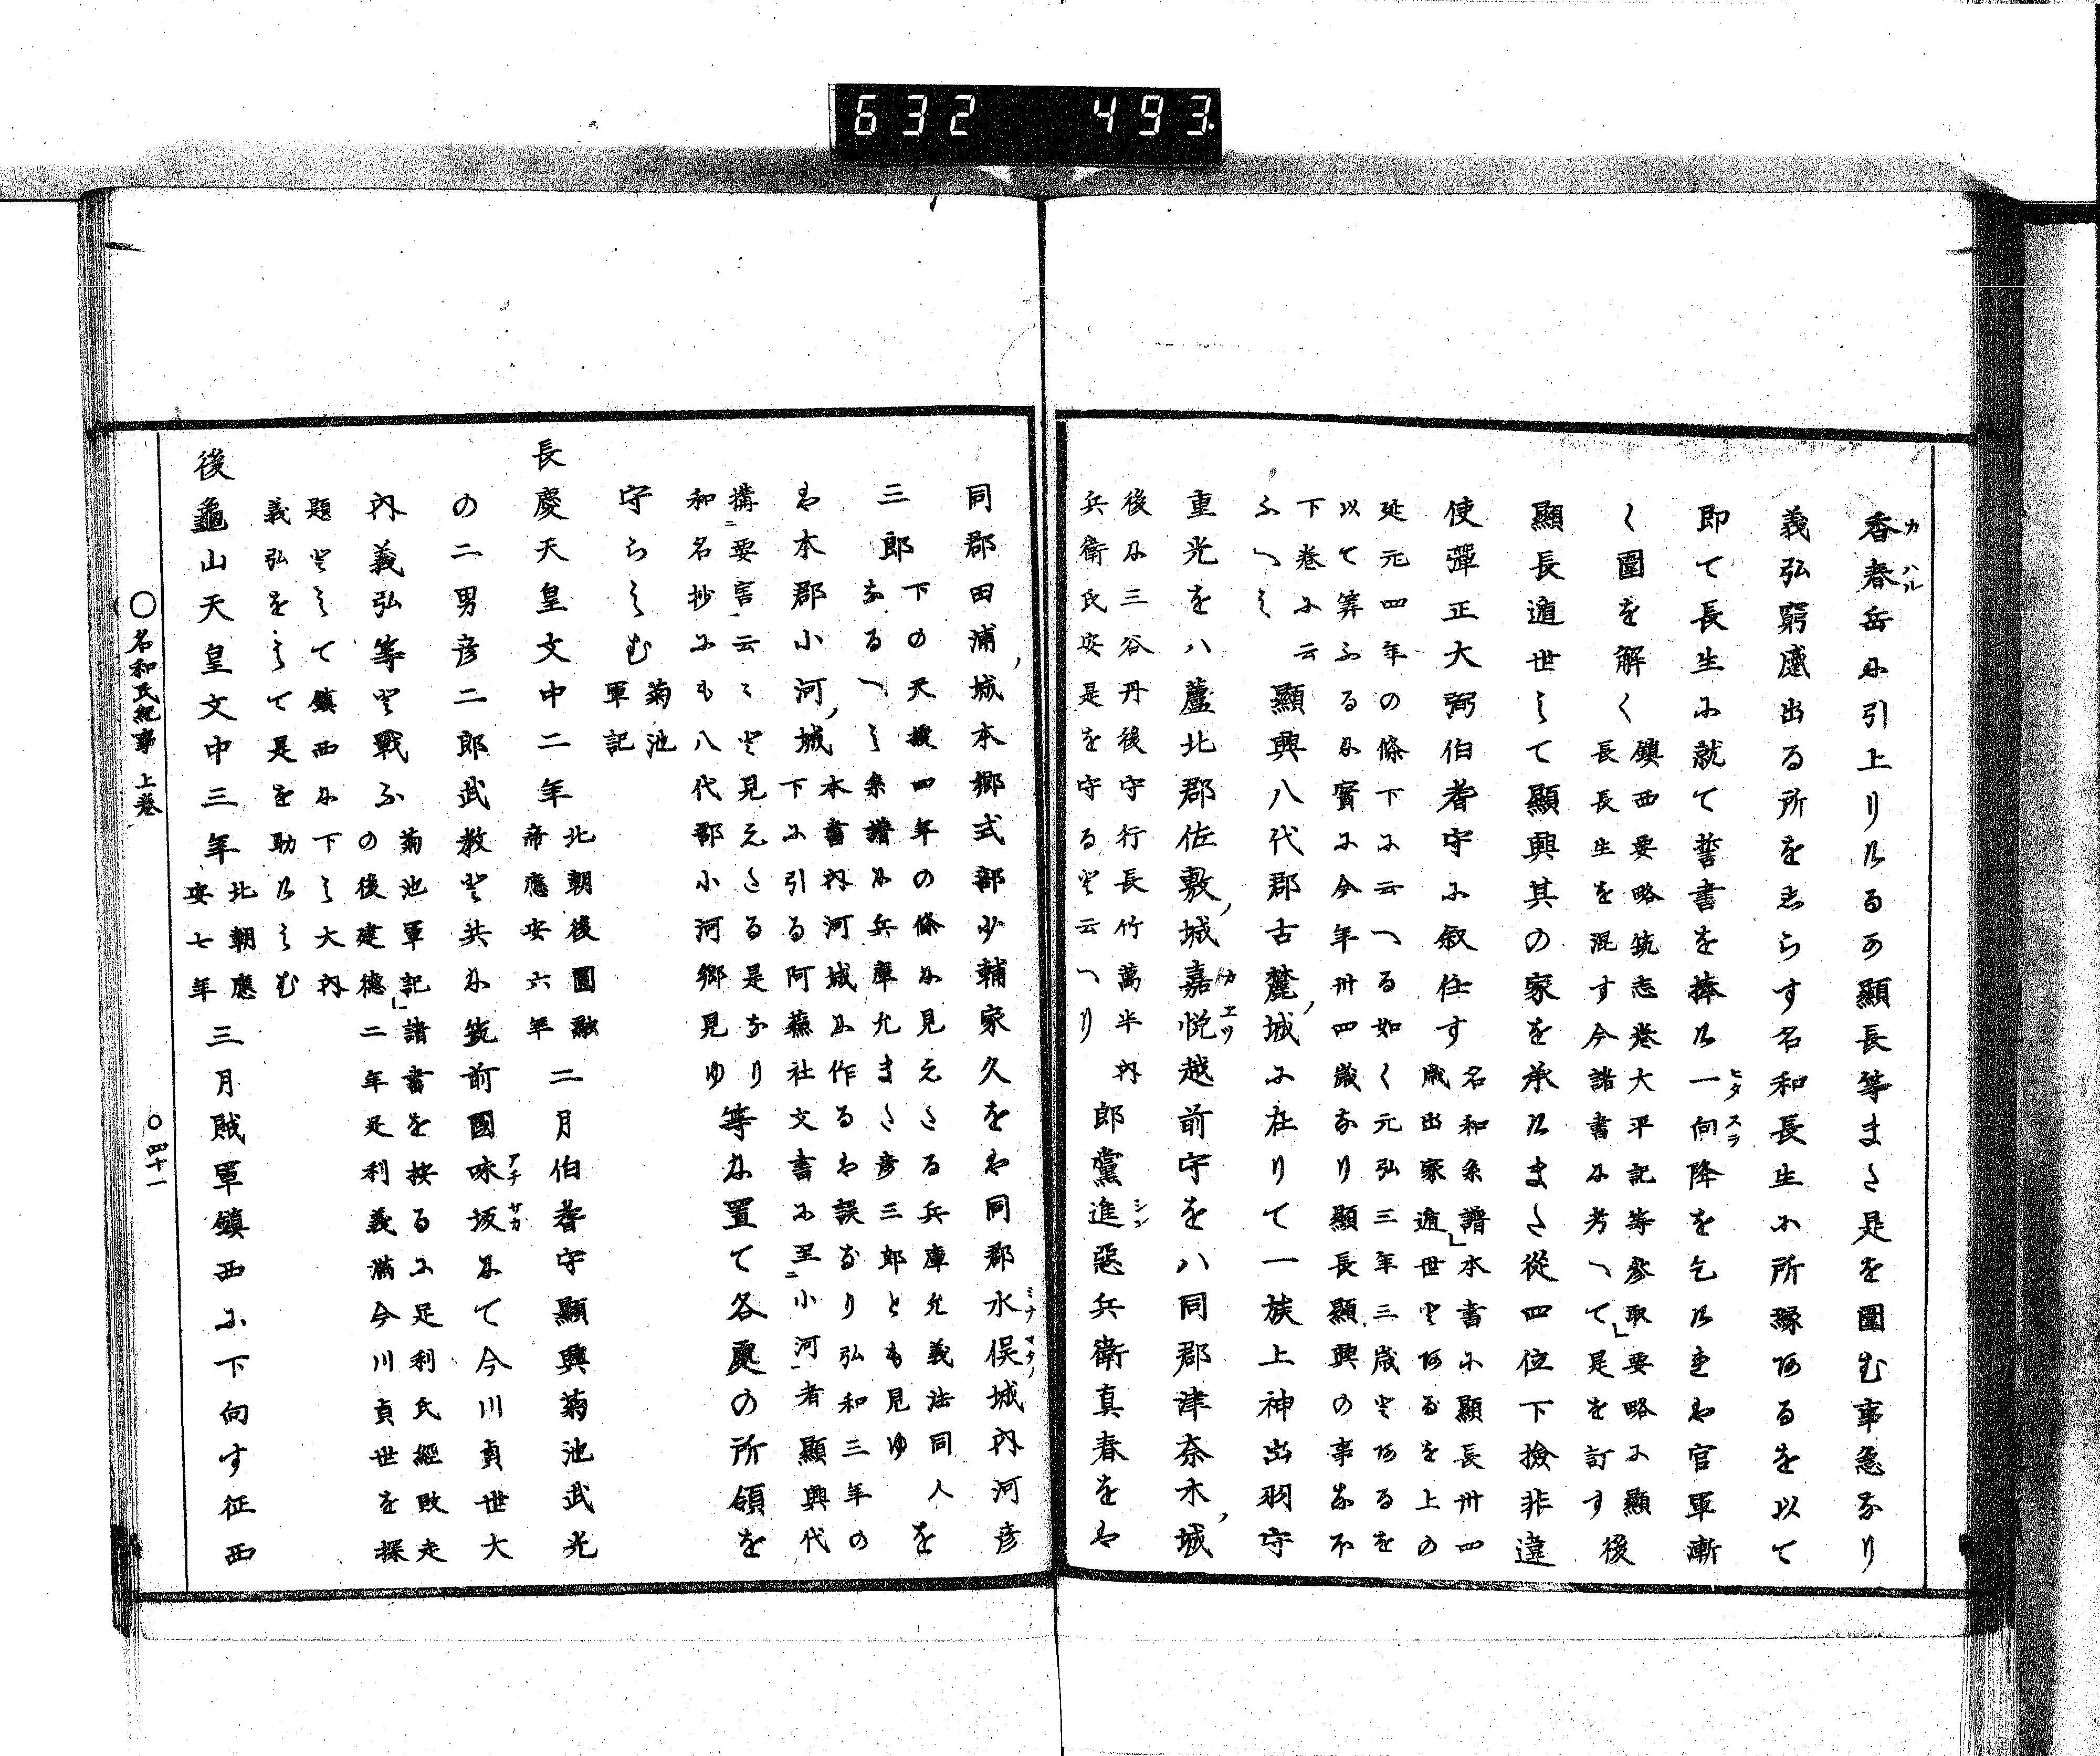 632 493.
香春岳に引上りけるか顯長等また是を圍む事急なり
カハル
義弘窮處出る所をしらす名和長生に所縁あるを以て
即て長生に就て誓書を捧け一向降を乞けれは官軍漸
ヒタスラ
く圍を解く
鎮西要略筑志巻大平記等參取要略に顯
長長生を混す今諸書に考へて是を訂す
後
顯長遁世して顯興其の家を承けまた從四位下撿非違
使彈正大弼伯耆守に叙任す
名和系譜本書に顯長卅四
歳出家遁世とあるを上の
延元四年の條下に云へる如く元弘三年三歳とあるを
以て筭ふるに實に今年卅四歳なり顯長顯興の事なほ
下巻に云
ふへし
顯興八代郡古麓城に在りて一族上神出羽守
重光をハ蘆北郡佐敷城嘉悦越前守をハ同郡津奈木城
カエツ
後に三谷丹後守行長竹萬半内
兵衛氏安是を守ると云へり
郎黨進惡兵衛真春をは
シン
同郡田浦城本郷式部少輔家久をは同郡水俣城内河彦
ミナマタノ
三郎
下の天授四年の條に見えたる兵庫允義法同人を
なるへし系譜に兵庫允また彦三郎とも見ゆ
は本郡小河城
本書内河城に作るは誤なり弘和三年の
下に引る阿蘇社文書に至小河者顯興代
構要害云々と見えたる是なり
和名抄にも八代郡小河郷見ゆ
等に置て各處の所領を
守らしむ
菊池
軍記
長慶天皇文中二年
北朝後圓融
帝應安六年
二月伯耆守顯興菊池武光
の二男彦二郎武教と共に筑前國味坂にて今川貞世大
アチサカ
内義弘等と戰ふ
菊池軍記諸書を按るに足利氏經敗走
の後建德二年足利義滿今川貞世を探
題として鎮西に下し大内
義弘をして是を助けしむ
後龜山天皇文中三年
北朝應
安七年
三月賊軍鎮西に下向す征西
○名和氏紀事 上巻
○四十一